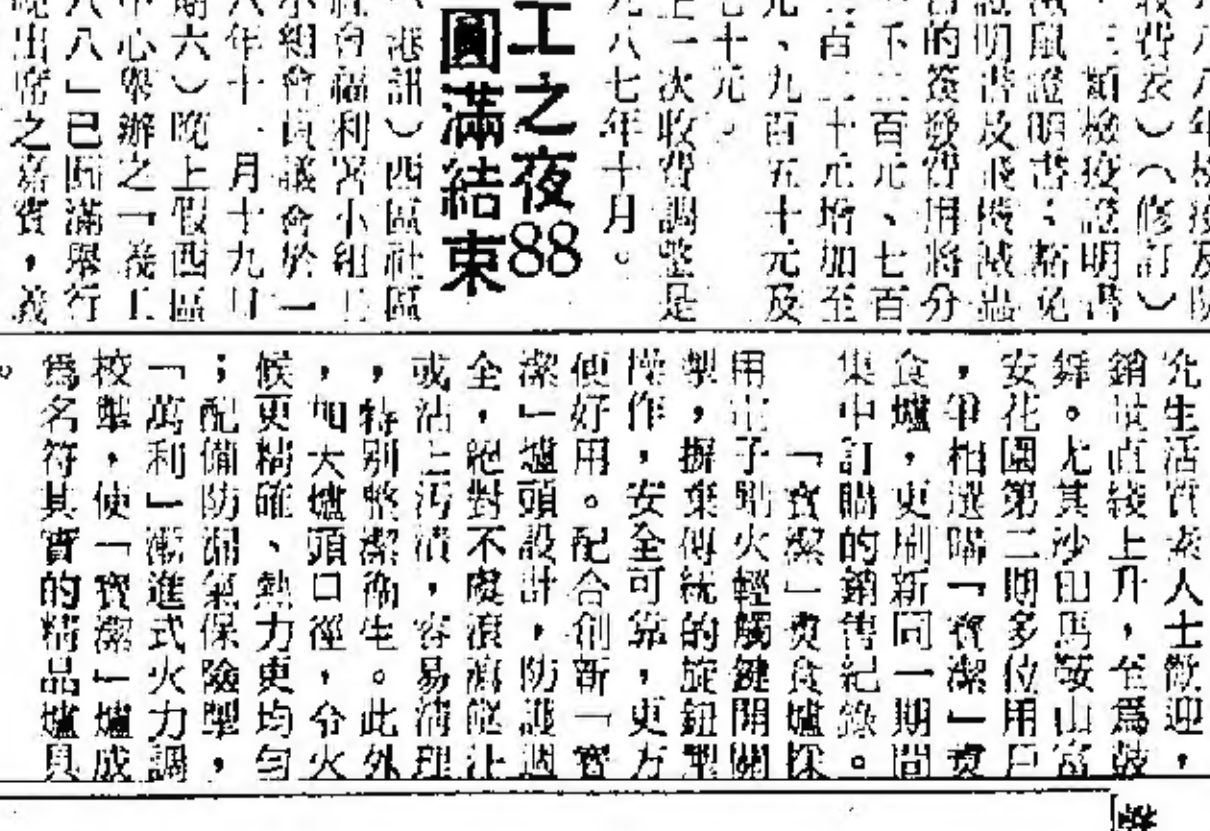 八八年檢疫及防
收費表）（修訂）
、三類檢疫證明書
滅鼠證明書；豁免
證明書及飛機滅蟲
書的簽發費用將分
千二百元、七百
百二十元增加至
元、九百五十元及
七十元。
上一次收費調整是
九八七年十月。
工之夜88
圓滿結束
港訊）西區社區
社會福利署小組工
小組會員議會於一
八年十一月十九日
期六）晚上假西區
中心舉辦之「義工
八八」已圓滿舉行
晚出席之嘉賓，義
充生活質素人士歡迎，
銷量直綫上升，至爲鼓
舞。尤其沙田馬鞍山富
安花園第二期多位用戶
，爭相選購「寶潔」煑
食爐，更刷新同一期間
集中訂購的銷售紀錄。
「寶潔」煑食爐採
用電子點火輕觸鍵開關
掣，摒棄傳統的旋鈕掣
操作，安全可靠，更方
便好用。配合創新「寶
潔」爐頭設計，防護週
全，絕對不虞滾瀉熄江
或沾上汚漬，容易清理
，特別整潔衞生。此外
，加大爐頭口徑，令火
候更精確、熱力更均勻
；配備防漏氣保險掣，
「萬利」漸進式火力調
校掣，使「寶潔」爐成
爲名符其實的精品爐具
。